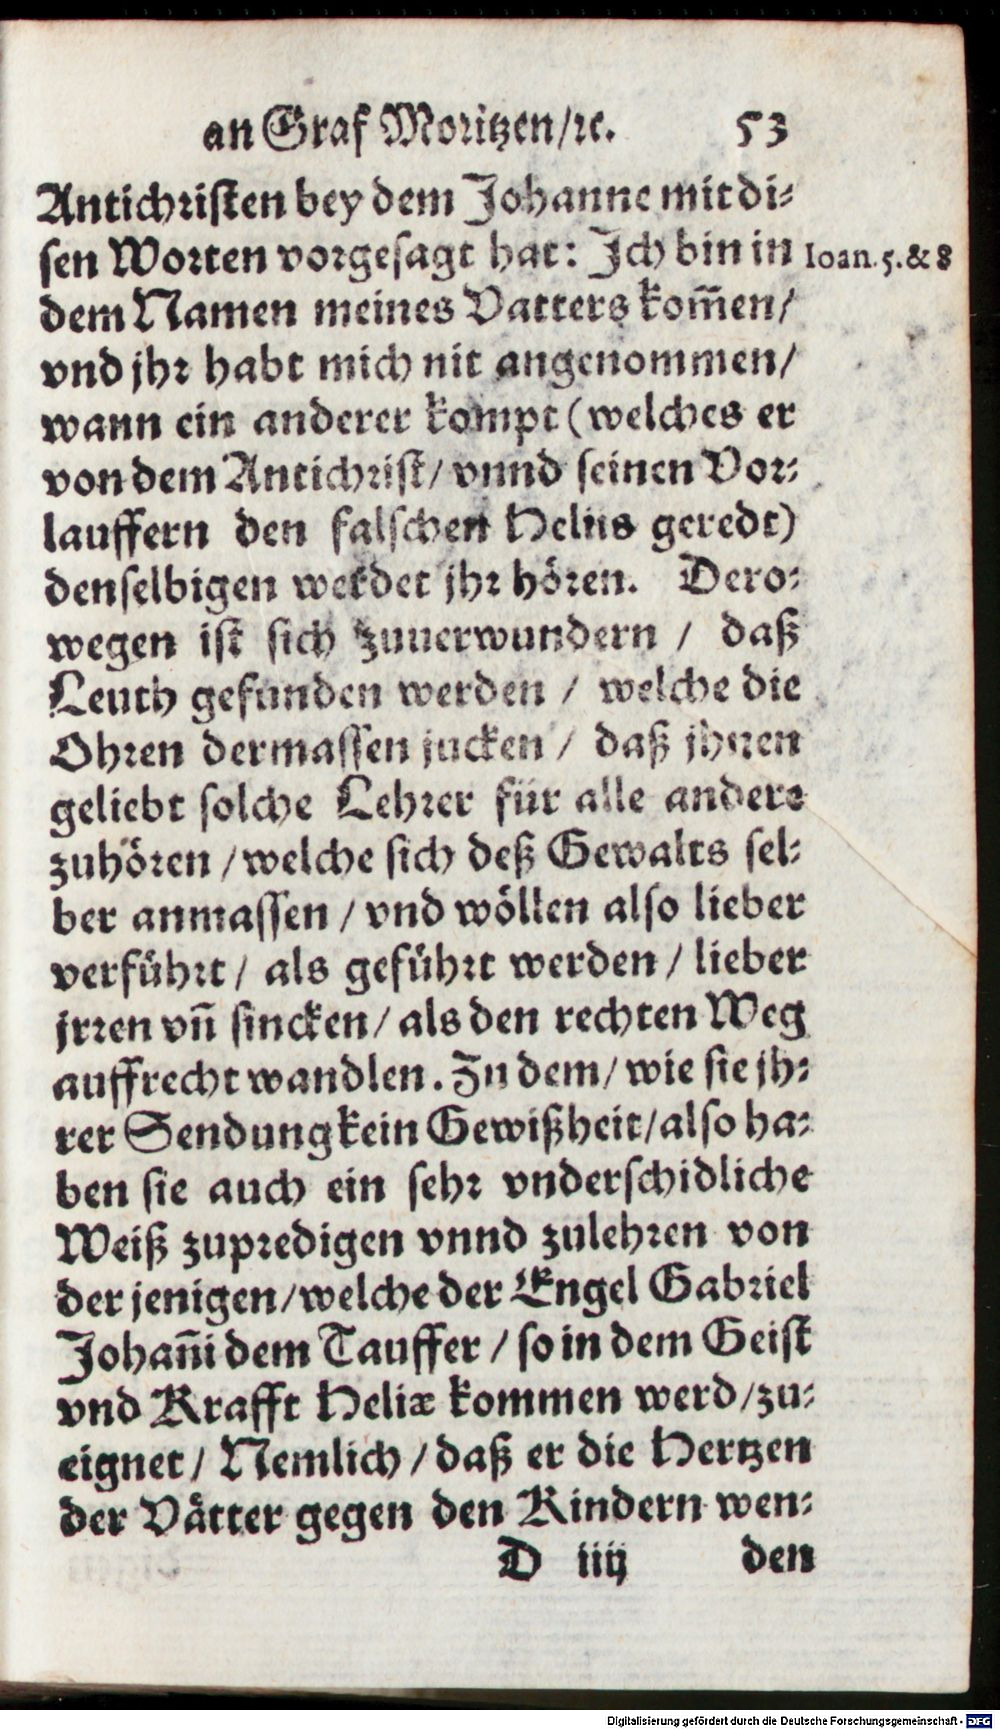 an Graf Moritzen/ꝛc. 53
Antichristen bey dem Johanne mit di-
sen Worten vorgesagt hat: Ich bin in Ioan. 5. & 8
dem Namen meines Vatters kom̃en/
vnd jhr habt mich nit angenommen/
wann ein anderer kompt (welches er
von dem Antichrist/ vnnd seinen Vor-
lauffern den falschen Helijs geredt)
denselbigen werdet jhr hören. Dero-
wegen ist sich zuuerwundern / daß
Leuth gefunden werden / welche die
Ohren dermassen jucken / daß jhnen
geliebt solche Lehrer für alle andere
zuhören / welche sich deß Gewalts sel-
ber anmassen / vnd wöllen also lieber
verführt / als geführt werden / lieber
jrren vñ sincken / als den rechten Weg
auffrecht wandlen. Zu dem / wie sie jh-
rer Sendung kein Gewißheit / also ha-
ben sie auch ein sehr vnderschidliche
Weiß zupredigen vnnd zulehren von
der jenigen / welche der Engel Gabriel
Johañi dem Tauffer / so in dem Geist
vnd Krafft Heliæ kommen werd / zu-
eignet / Nemlich / daß er die Hertzen
der Vätter gegen den Kindern wen-
D iiij den
Digitalisierung gefördert durch die Deutsche Forschungsgemeinschaft - DFG